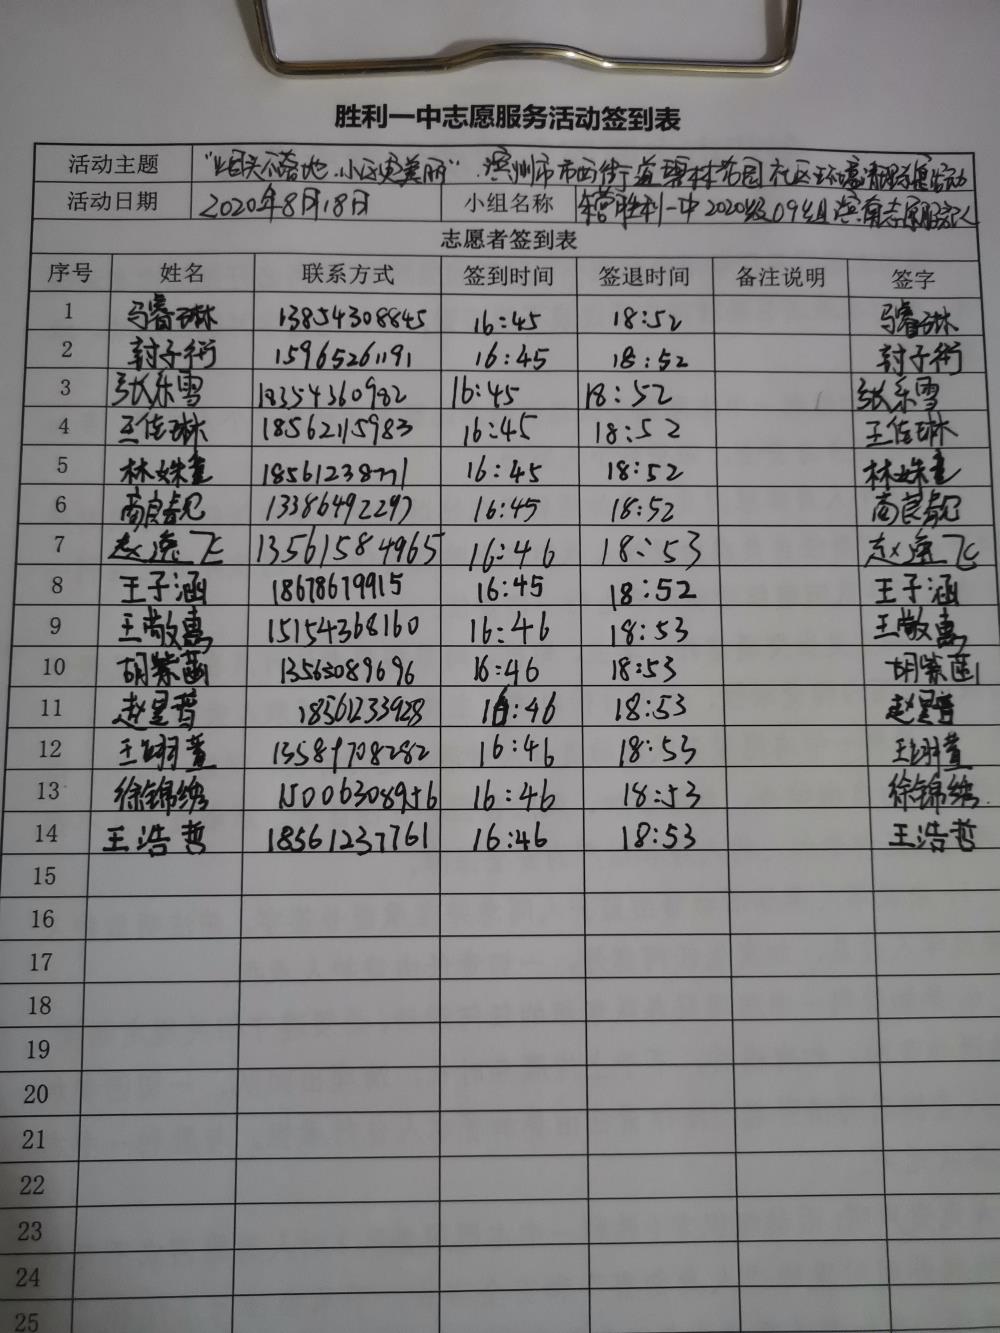 胜利一中志愿服务活动签到表
活动主题 "烟头不落地,小区更美丽".滨州市市西街道碧林花园社区环境清理志愿活动
活动日期 2020年8月18日 小组名称 东营胜利一中2020级09组滨南志愿服务队
志愿者签到表
序号 姓名 联系方式 签到时间 签退时间 备注说明 签字
1 马睿琳 13854308845 16:45 18:52 马睿琳
2 封子衔 15965261191 16:45 18:52 封子衔
3 张乐雪 18354360982 16:45 18:52 张乐雪
4 王佳琳 18562115983 16:45 18:52 王佳琳
5 林姝童 16:45 18:52 林姝童
6 商良毅 13386492297 16:45 18:52 商良毅
7 赵逸飞 13561584965 16:46 18:53 赵逸飞
8 王子涵 18678679915 16:45 18:52 王子涵
9 王敬惠 15154368160 16:46 18:53 王敬惠
10 胡紫菡 13563089696 16:46 18:53 胡紫菡
11 赵星哲 18561233928 16:46 18:53 赵星哲
12 王翊萱 13589708282 16:46 18:53 王翊萱
13 徐锦绣 15006308956 16:46 18:53 徐锦绣
14 王浩哲 18561237761 16:46 18:53 王浩哲
15
16
17
18
19
20
21
22
23
24
25